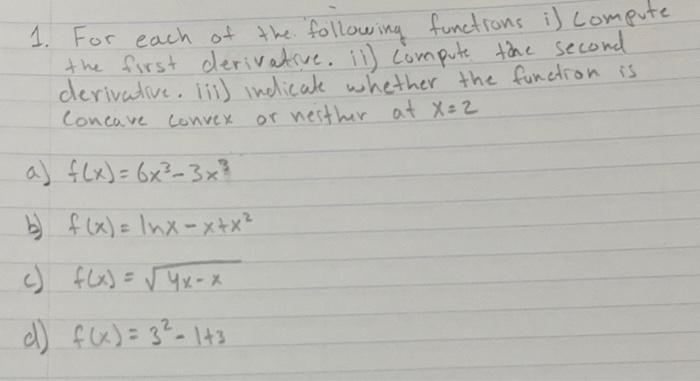 1. For each of the following functions i) compute
the first derivative. ii) compute the second
derivative. iii) indicate whether the function is
concave convex or neither at x=2
a) f(x) = 6x³ - 3x³
b) f(x) = lnx - x+x²
c) f(x) = √4x-x
d) f(x) = 3² - 1+3